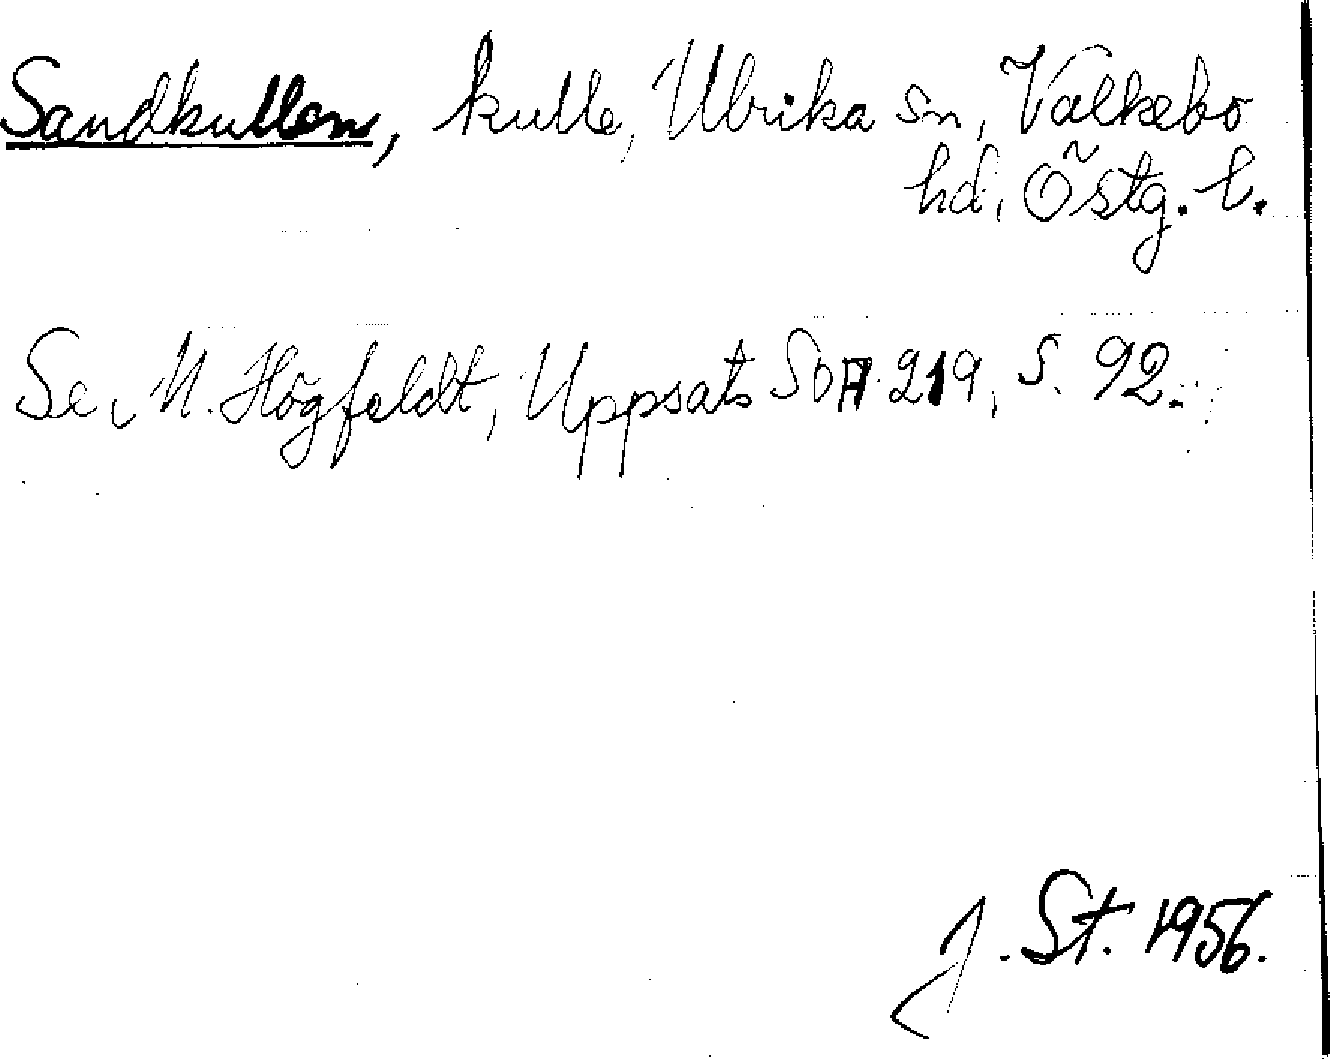 Sandkullen, kulle, Ulrika sn, Valkebo
hd, Östg. l.
Se M. Högfeldt, Uppsats SOA 219, s. 92.
J. St. 1956.